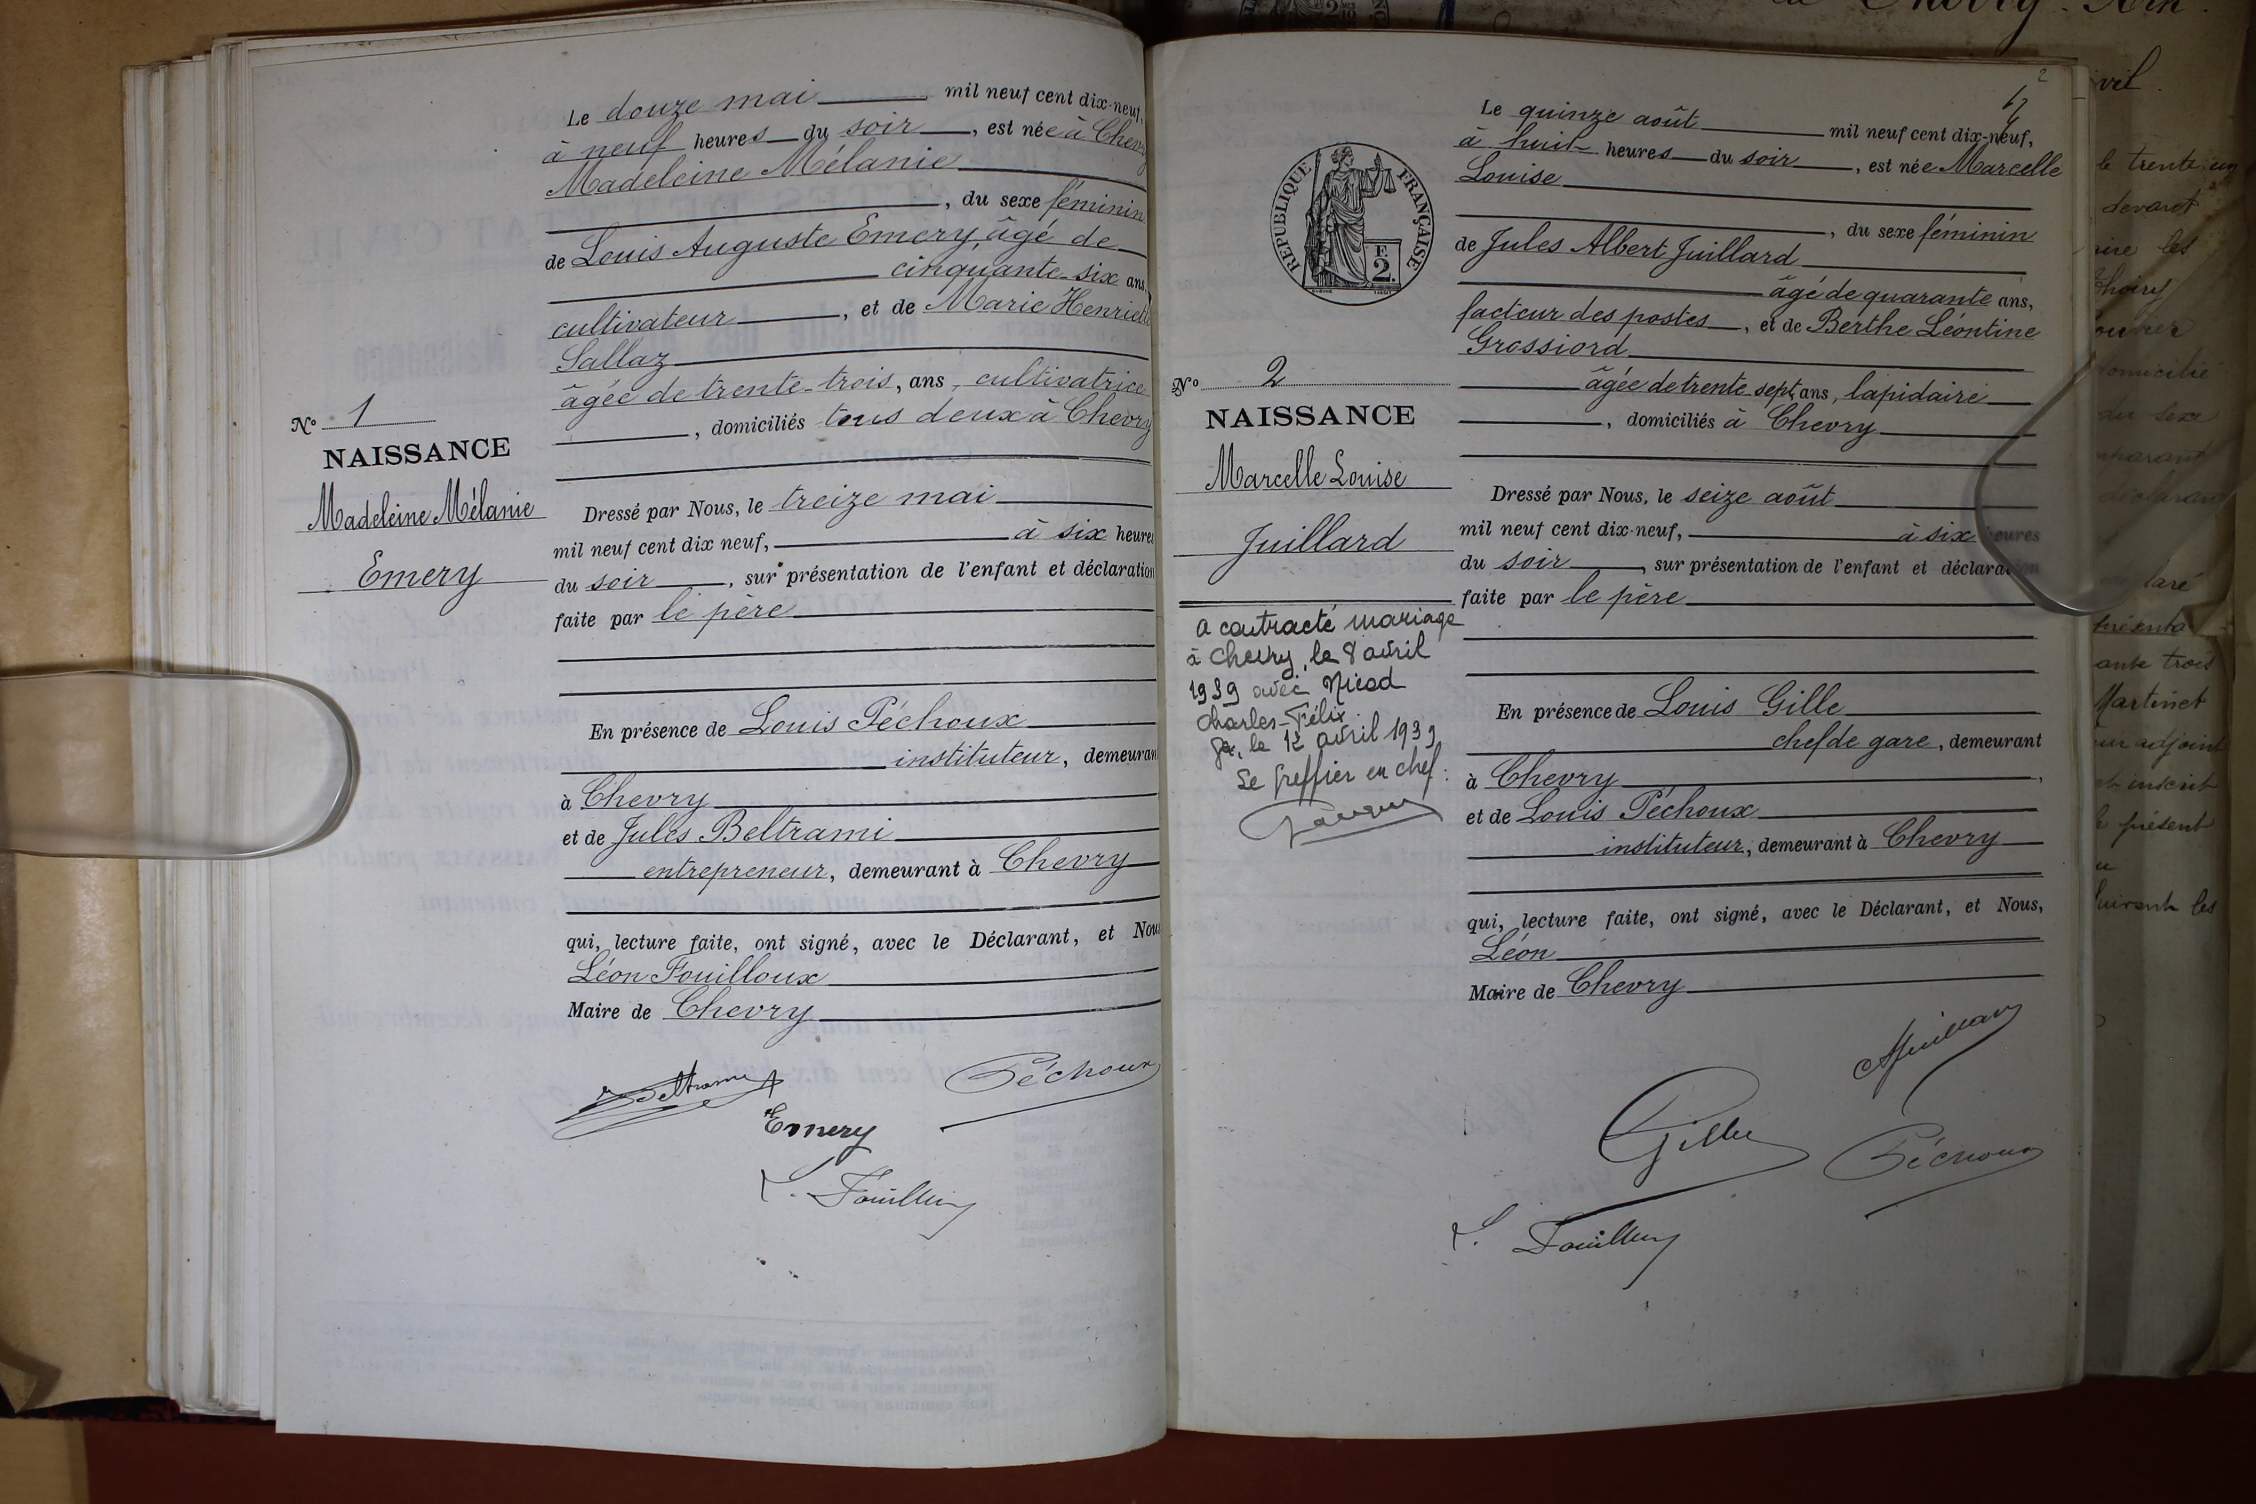 Le douze mai mil neuf cent dix-neuf,
à neuf heures du soir, est née à Chevry
Madeleine Mélanie
, du sexe féminin
de Louis Auguste Emery, âgé de
cinquante-six ans,
cultivateur, et de Marie Henriette
Sallaz
âgée de trente-trois, ans, cultivatrice
, domiciliés tous deux à Chevry
No 1
NAISSANCE
Madeleine Mélanie
Emery
Dressé par Nous, le treize mai
mil neuf cent dix neuf, à six heures
du soir, sur présentation de l'enfant et déclaration
faite par le père
En présence de Louis Péchoux
instituteur, demeurant
à Chevry
et de Jules Beltrami
entrepreneur, demeurant à Chevry
qui, lecture faite, ont signé, avec le Déclarant, et Nous
Léon Fouilloux
Maire de Chevry
Beltrami
Péchoux
Emery
L. Fouilloux
2
Le quinze août mil neuf cent dix-neuf,
à huit heures du soir, est née Marcelle
Louise
, du sexe féminin
de Jules Albert Juillard
âgé de quarante ans,
facteur des postes, et de Berthe Léontine
Grossiord
âgée de trente sept ans, lapidaire
, domiciliés à Chevry
RÉPUBLIQUE FRANÇAISE
E
2.
No 2
NAISSANCE
Marcelle Louise
Juillard
a contracté mariage
à Chevry, le 8 avril
1939 avec Nicod
Charles-Félix.
Gex, le 12 avril 1939
Le Greffier en chef:
Dressé par Nous, le seize août
mil neuf cent dix-neuf, à six heures
du soir, sur présentation de l'enfant et déclaration
faite par le père
En présence de Louis Gille
chef de gare, demeurant
à Chevry,
et de Louis Péchoux
instituteur, demeurant à Chevry
qui, lecture faite, ont signé, avec le Déclarant, et Nous,
Léon
Maire de Chevry
AJuillard
Gille
Péchoux
L. Fouilloux
le trente-un
devant
domicilié
du sexe
ante trois
Martinet
adjoint
et inscrit
le présent
suivant les